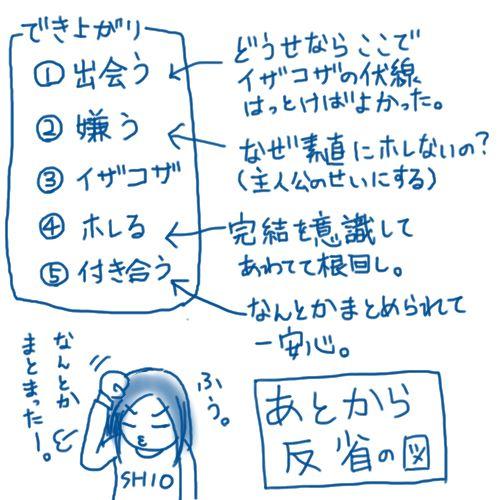 でき上がり
①出会う
②嫌う
③イザコザ
④ホレる
⑤付き合う
どうせならここで
イザコザの伏線
はっとけばよかった。
なぜ素直にホレないの?
(主人公のせいにする)
完結を意識して
あわてて根回し。
なんとかまとめられて
一安心。
なんとか
まとまったー。
ふう。
SHIO
あとから
反省の図